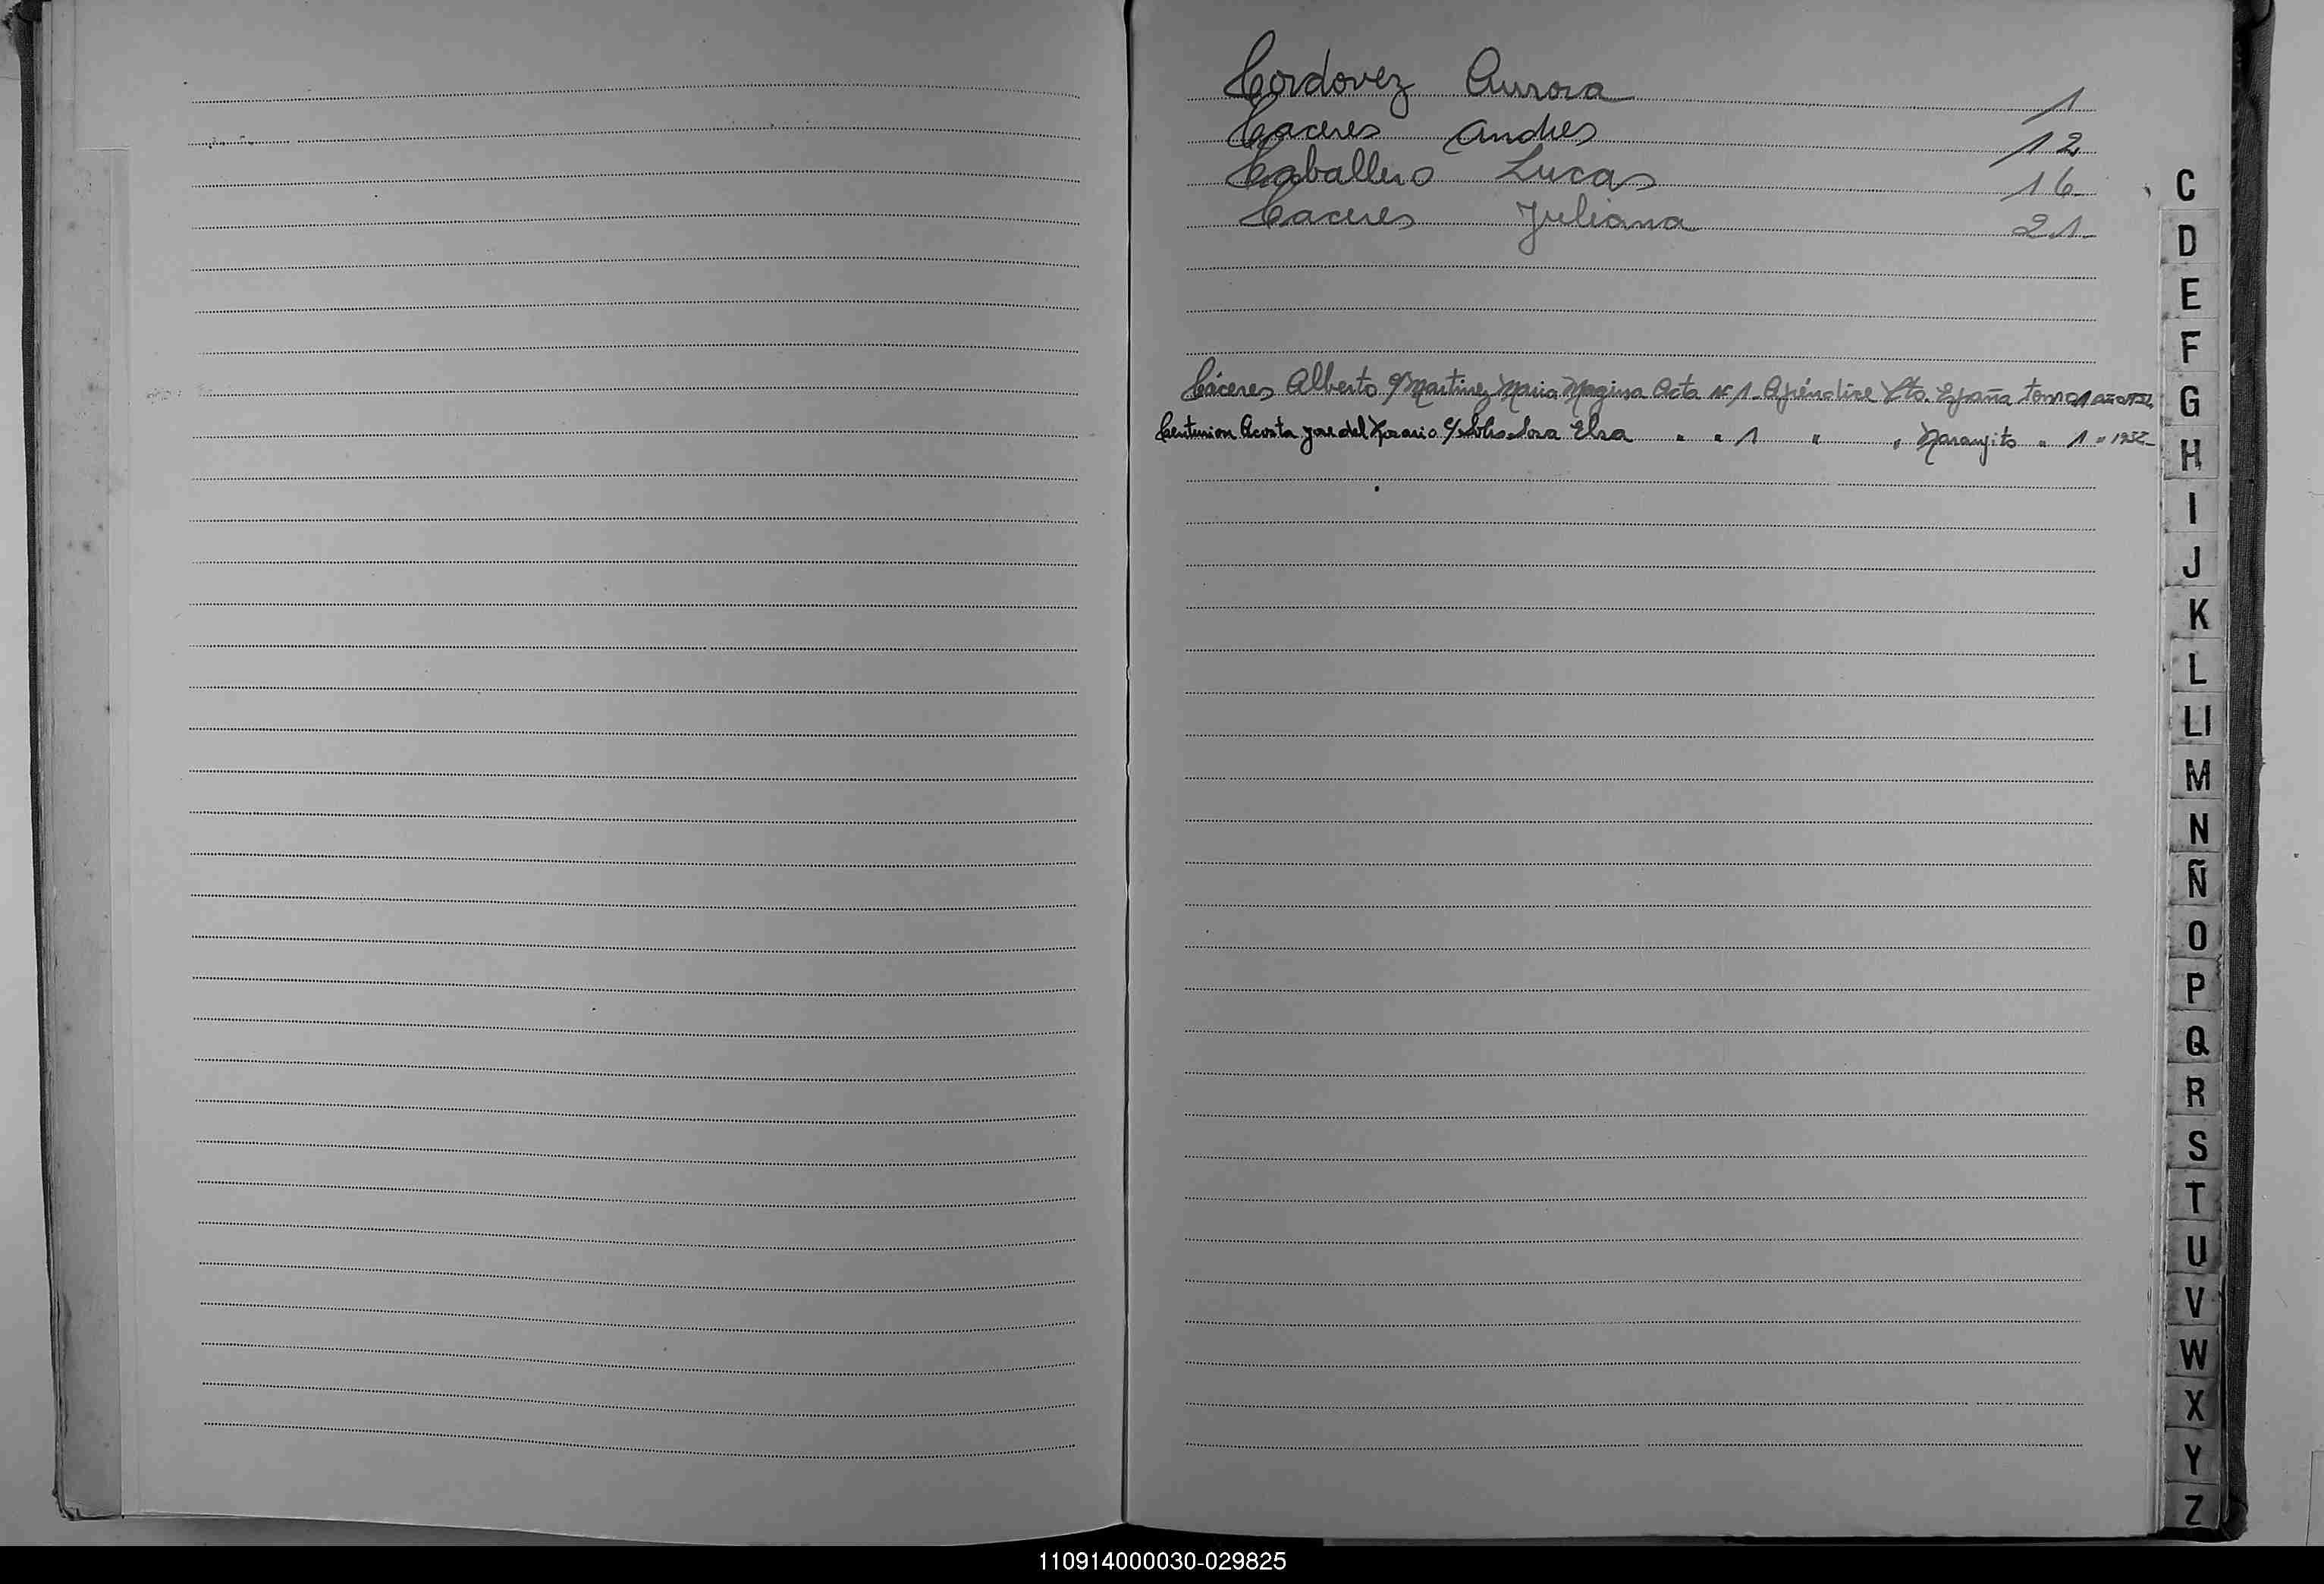 Cordovez Aurora 1
Caceres Andres 12
Caballero Lucas 16
Caceres Juliana 21
Cáceres Alberto c/ Martinez Maria Magina Acta Nº 1 - Apéndice Pto. España tomo 1 año
Centurion Acosta Jose del Rosario c/ Sosa Elsa " " 1 " " Naranjito " 1 " 1952
C
D
E
F
G
H
I
J
K
L
Ll
M
N
Ñ
O
P
Q
R
S
T
U
V
W
X
Y
Z
110914000030-029825